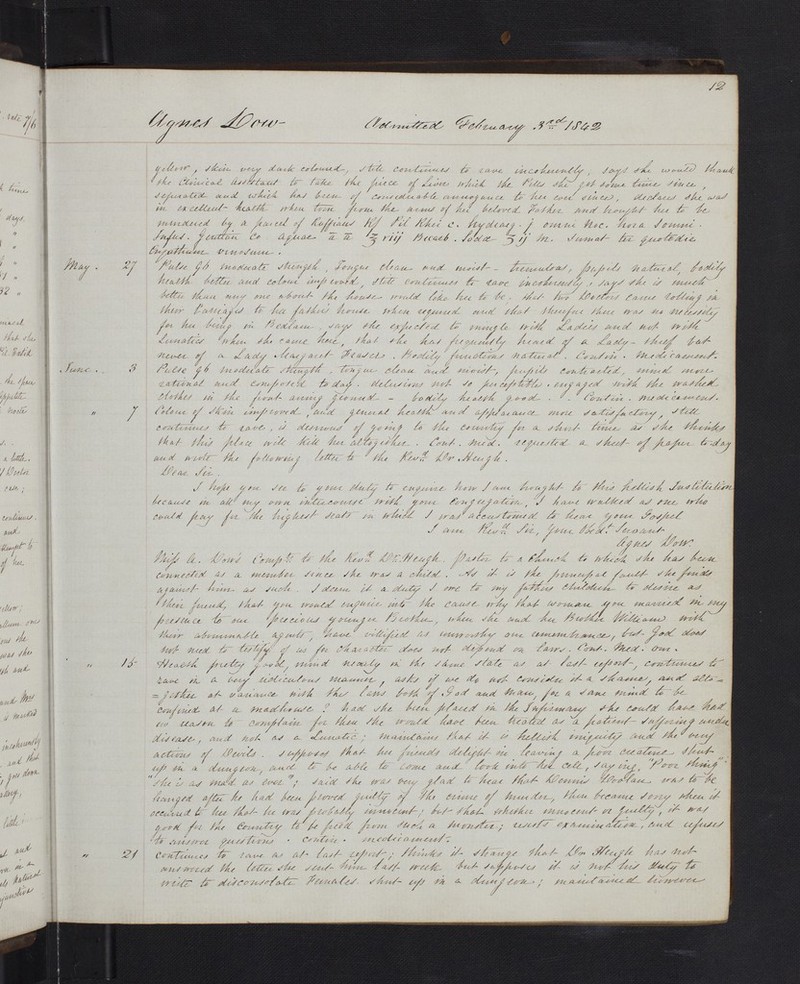 12
Agnes Dow Admitted February 3rd 1842
yellow, skin very dark coloured, still continues to rave incoherently, says she would thank
the Clinical assistant to take the piece of Liver which the Pills she got some time since,
separated and which has been of considerable annoyance to her ever since, declares she was
in excellent health when torn from the arms of her beloved Father and brought here to be
murdered by a parcel of Ruffians Rx Pil Rhei c. Hydrarg. j omni Noc. hora Somni.
Infus. Gentian Co aquae a a ℥ viij Bicarb. Sodae ʒ ij m. Sumat ter quotidie
Cyathum vinosum.
May. 27 Pulse 96 moderate strength, Tongue clean and moist - tremulous, pupils natural, bodily
health better and colour improved, still continues to rave incoherently, says she is much
better than any one about the house would like her to be, that two Doctors came rolling in
their Carriages to her fathers house when required and that therefore there was no necessity
for her being in Bedlam. says she expected to mingle with Ladies and not with
Lunatics when she came here, that she has frequently heard of a Lady- but
never of a Lady Margaret. Bodily functions natural. Contin. Medicament.
June. 3 Pulse 96 moderate strength, tongue clean and moist, pupils contracted, mind more
rational and composed to day. delusions not so perceptible. engaged with the washed
clothes in the front airing ground - bodily health good. Contin. medicament.
" 7 Colour of skin improved, and general health and appearance more satisfactory, still
continues to rave, is desirous of going to the country for a short time as she thinks
that this place will kill her altogether. Cont. med. requested a sheet of paper to-day
and wrote the following letter to the Revd. Dr. Heugh.
Dear Sir
I hope you see to your duty to enquire how I am brought to this hellish Institution
because in all my own intercourse with your Congregation, I have walked as one who
could pay for the highest seats in which I was accustomed to hear your Gospel
I am Revd. Sir, your Obdt. Servant
Agnes Dow.
Miss A. Dow's Compts to the Revd. Dr. Heugh. Pastor to a Church to which she has been
connected as a member since she was a child. As it is the principal fault she finds
against him as such. I deem it a duty I owe to my fathers children to desire as
their friend, that you would enquire into the cause why that woman you married in my
presence to our precious younger Brother, when she and her Brother William with
their abominable agents, have vilified as unworthy our remembrance, but God does
not need to testify of us for character does not depend on laws. Cont. Med. om.
" 15 Health pretty good, mind nearly in the same state as at last report, continues to
rave in a very ridiculous manner, asks if we do not consider it a shame, and alto-
=gether at variance with the laws both of God and Man, for a sane mind to be
confined at a madhouse? had she been placed in the Infirmary she could have had
no reason to complain for then she would have been treated as a patient suffering under
disease, and not as a Lunatic; maintains that it is hellish iniquity and the very
actions of Devils. supposes that her friends delight in leaving a poor creature shut
up in a dungeon, and to be able to come and look into her cell, saying, "Poor thing"
"she is as mad as ever"; said she was very glad to hear that Dennis was to be
hanged after he had been proved guilty of the crime of murder, then became sorry when it
occurred to her that he was probably innocent; but that whether innocent or guilty, it was
good for the Country to be freed from such a monster; resists examination, and refuses
to answer questions. contin. medicament.
" 21 Continues to rave as at last report; thinks it strange that Dr. Heugh has not
answered the letter she sent him last week but supposes it is not his duty to
write to disconsolate Females shut up in a dungeon; maintained however